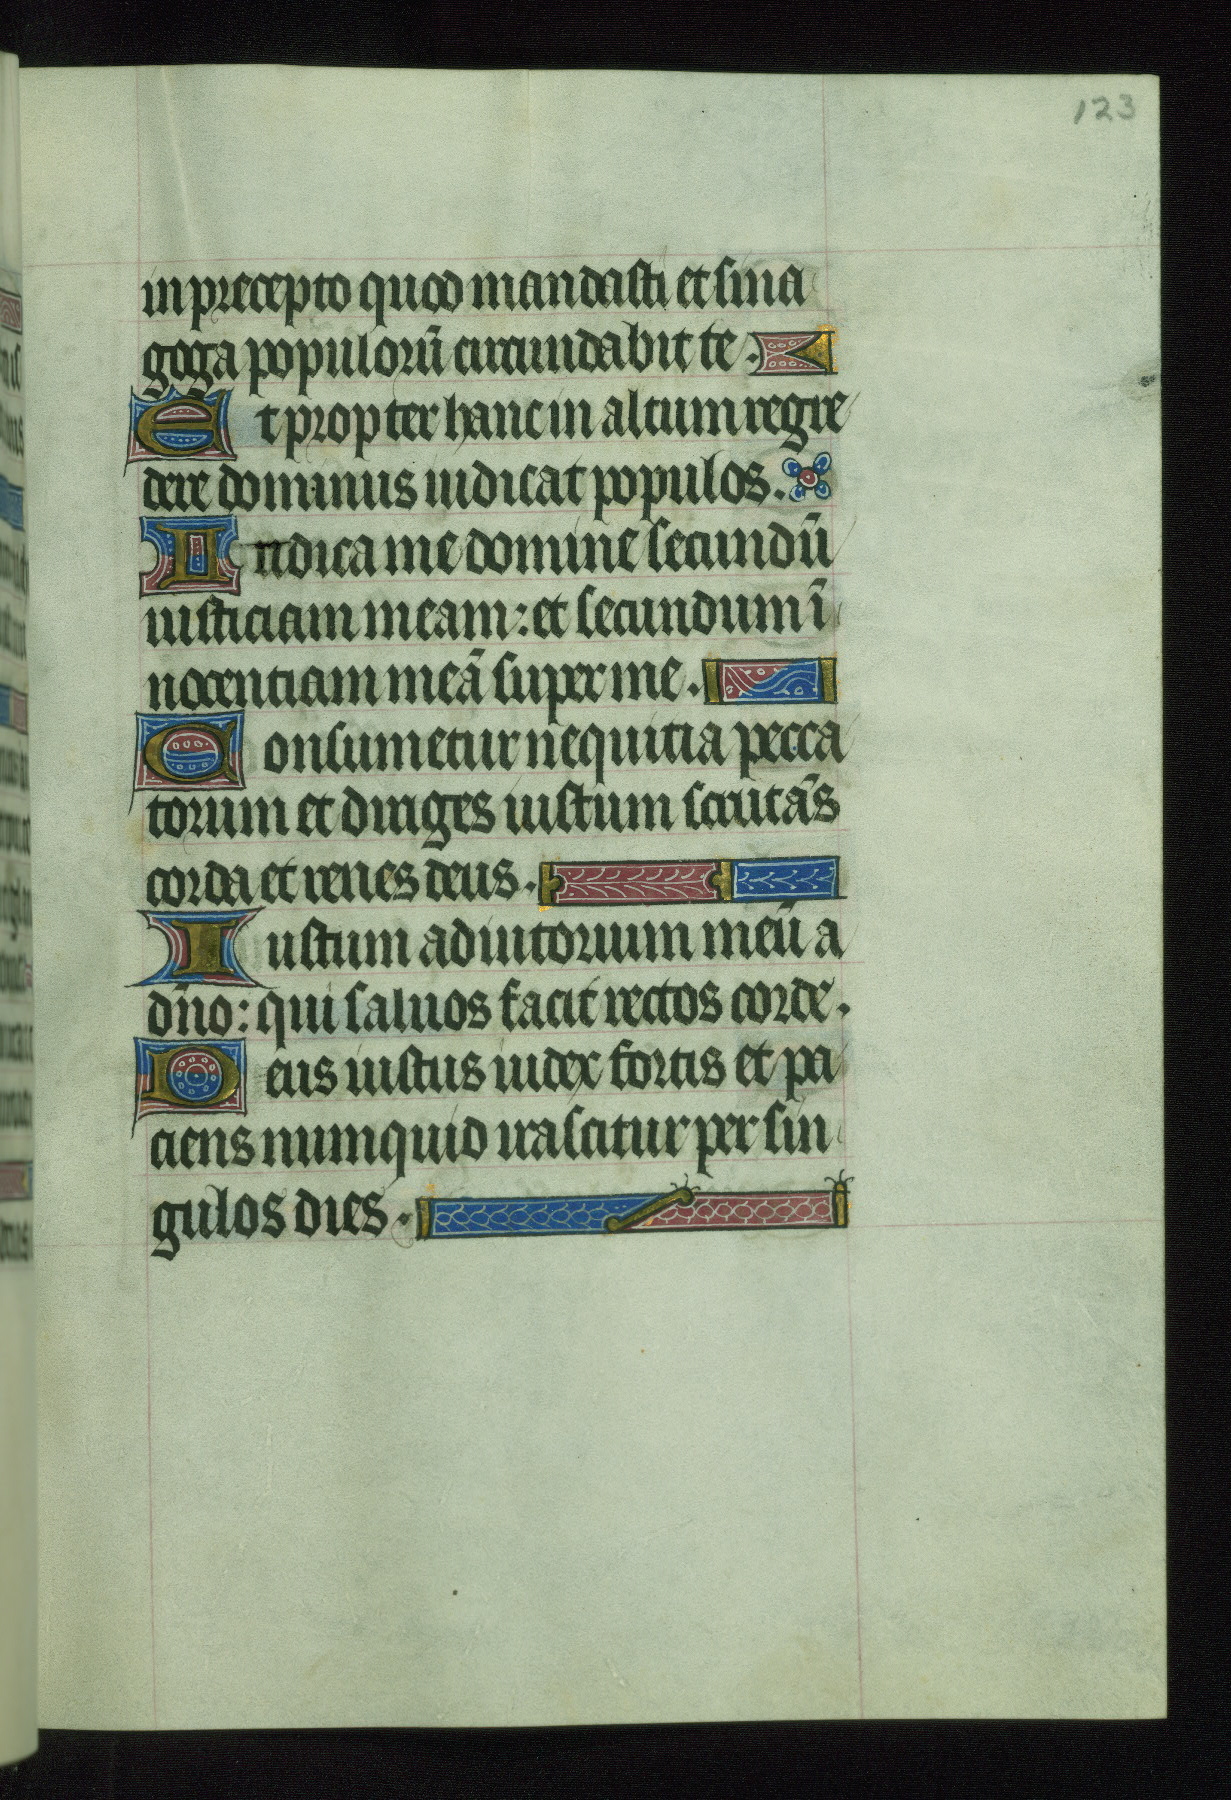 123
in precepto quod mandasti et sina
goga populorū circundabit te.
Et propter hanc in altum regre
dere dominus iudicat populos.
Iudica me domine secundū
iusticiam meam: et secundum ī
nocentiam meā super me.
Consumetur nequitia pecca
torum et diriges iustum scrutās
corda et renes deus.
Iustum adiutorium meū a
dn̄o: qui saluos facit rectos corde.
Deus iustus iudex fortis et pa
ciens numquid irascitur per sin
gulos dies.